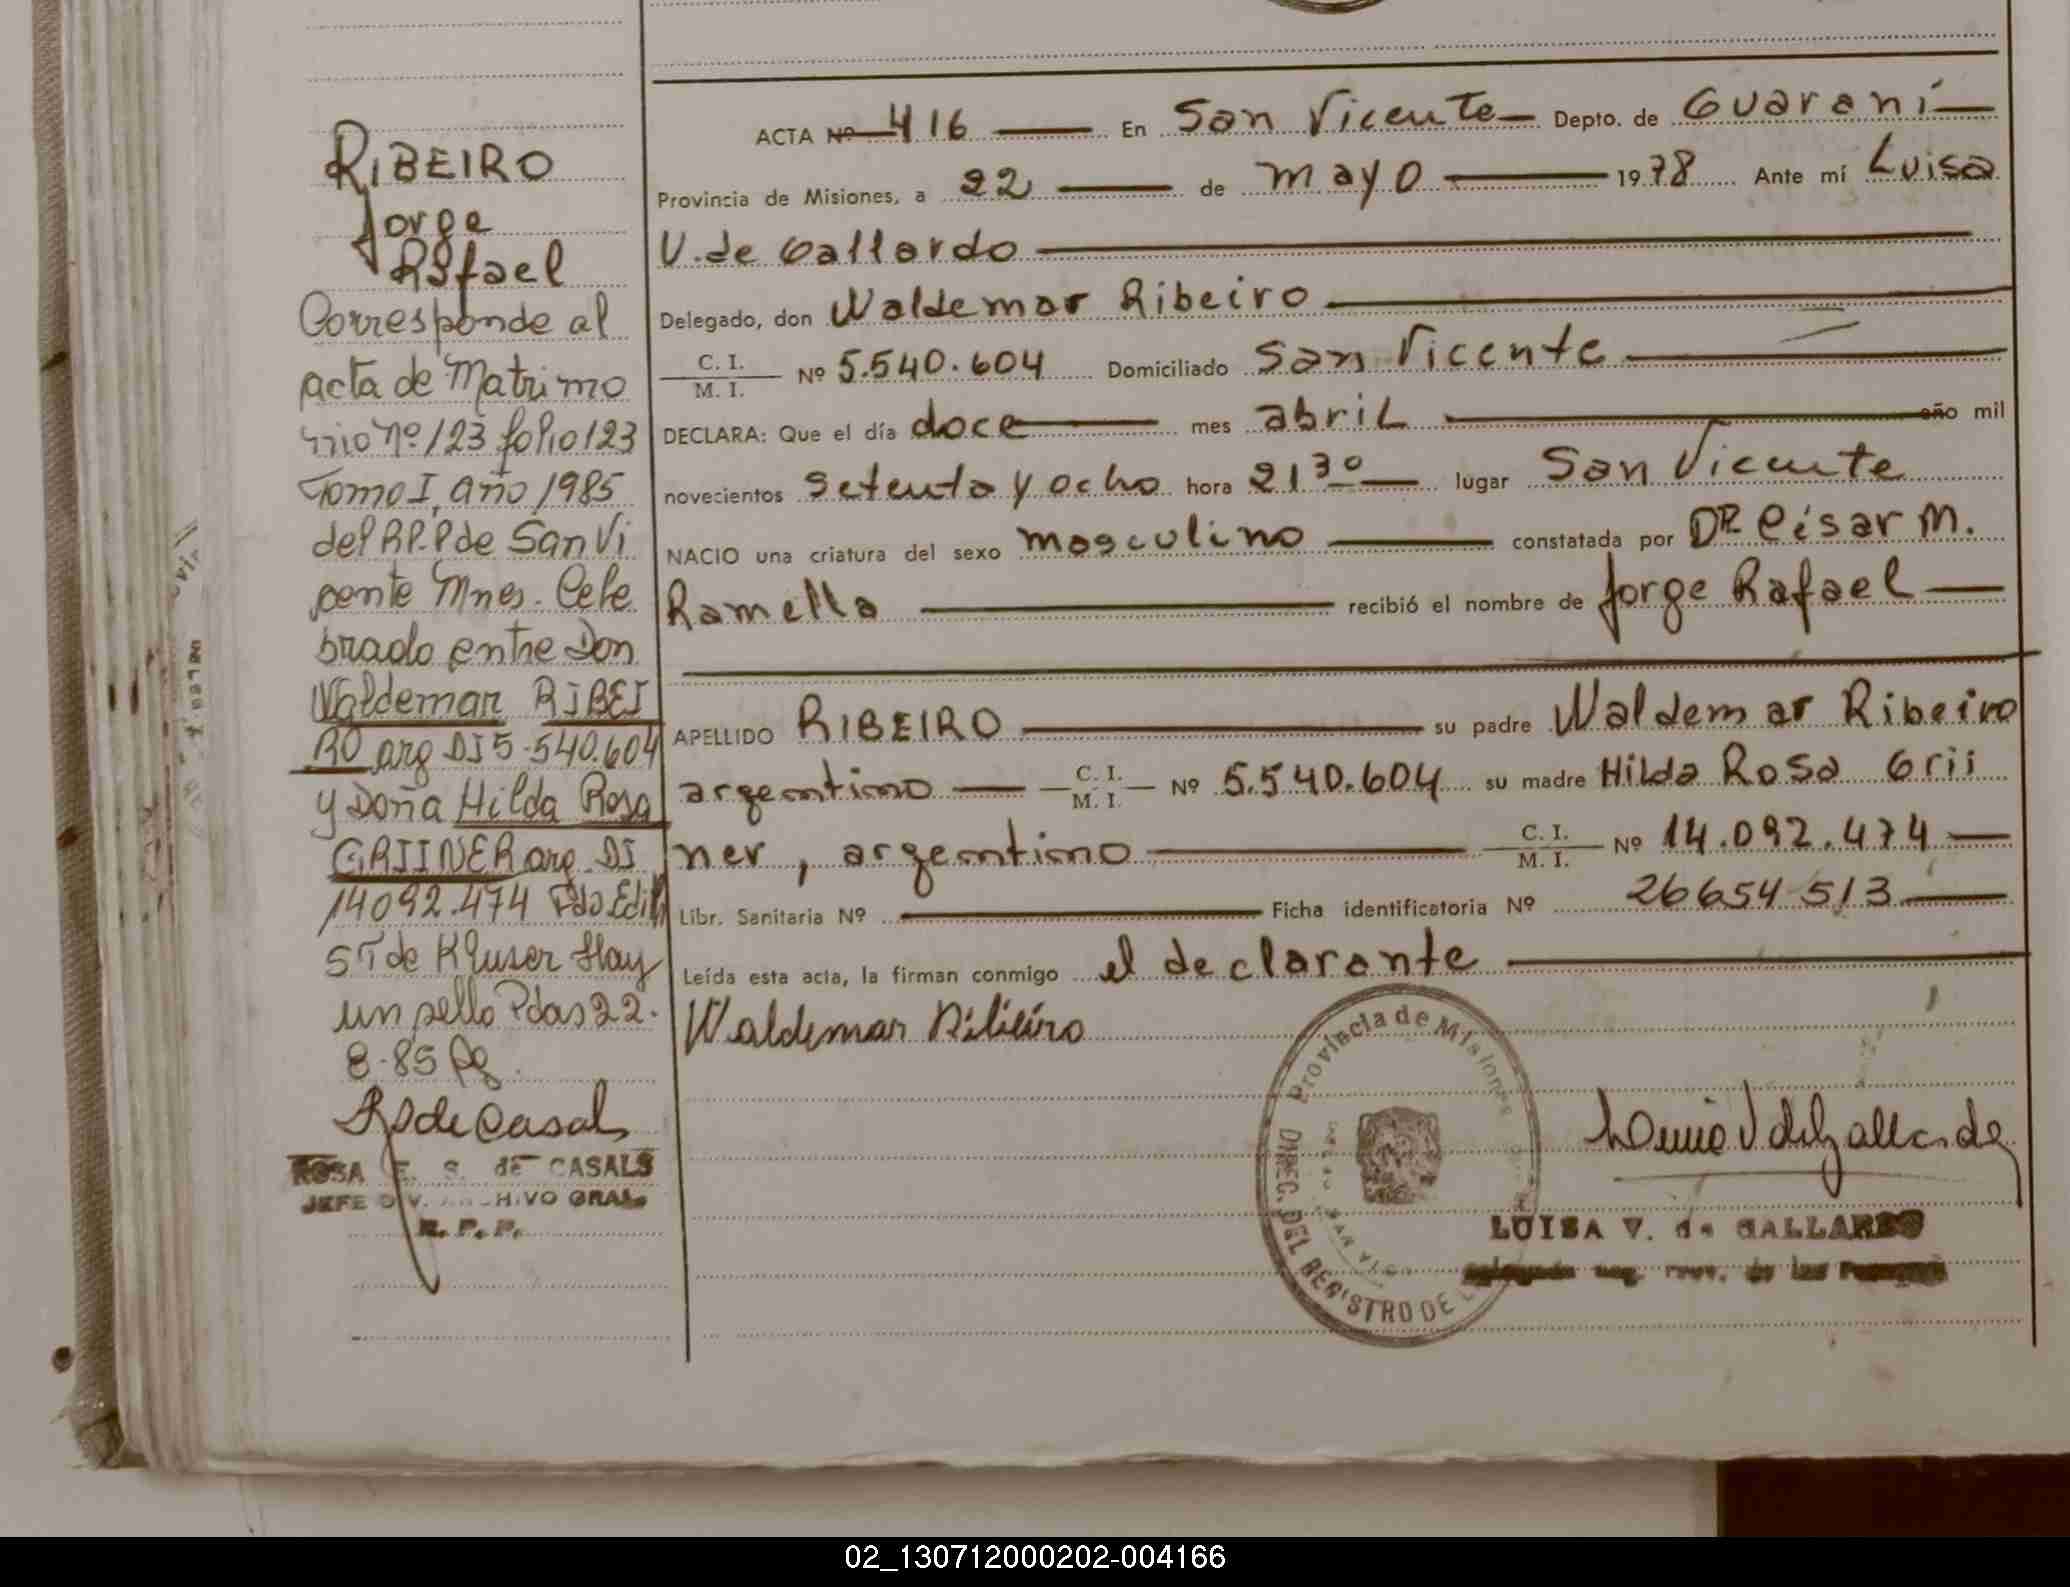 RIBEIRO
Jorge
Rafael
Corresponde al
acta de Matrimo
nio nº 123 folio 123
Tomo I, año 1985
del RP.P de San Vi
cente Mnes. Cele
brado entre Don
Waldemar RIBEI
RO arg DI 5.540.604
y Doña Hilda Rosa
GRIINER arg. DI
14092.474 Fdo Edith
ST de Kluser Hay
un sello Pdas 22.
8-85
ROSA E. S. de CASALS
JEFE DIV. ARCHIVO GRAL.
R. P. P.
ACTA Nº 416 En San Vicente Depto. de Guaraní
Provincia de Misiones, a 22 de mayo 1978 Ante mí Luisa
V. de Gallardo
Delegado, don Waldemar Ribeiro
C. I.
M. I. Nº 5.540.604 Domiciliado San Vicente
DECLARA: Que el día doce mes abril año mil
novecientos setenta y ocho hora 21 30 lugar San Vicente
NACIO una criatura del sexo masculino constatada por DR. César M.
Ramella recibió el nombre de Jorge Rafael
APELLIDO RIBEIRO su padre Waldemar Ribeiro
argentino C. I. M. I. Nº 5.540.604 su madre Hilda Rosa Grii
ner, argentino C. I. M. I. Nº 14.092.474
Libr. Sanitaria Nº Ficha identificatoria Nº 26654513
Leída esta acta, la firman conmigo el declarante
Waldemar Ribeiro
Provincia de Misiones
DIREC. DEL REGISTRO DE
LUISA V. de GALLARDO
02_130712000202-004166